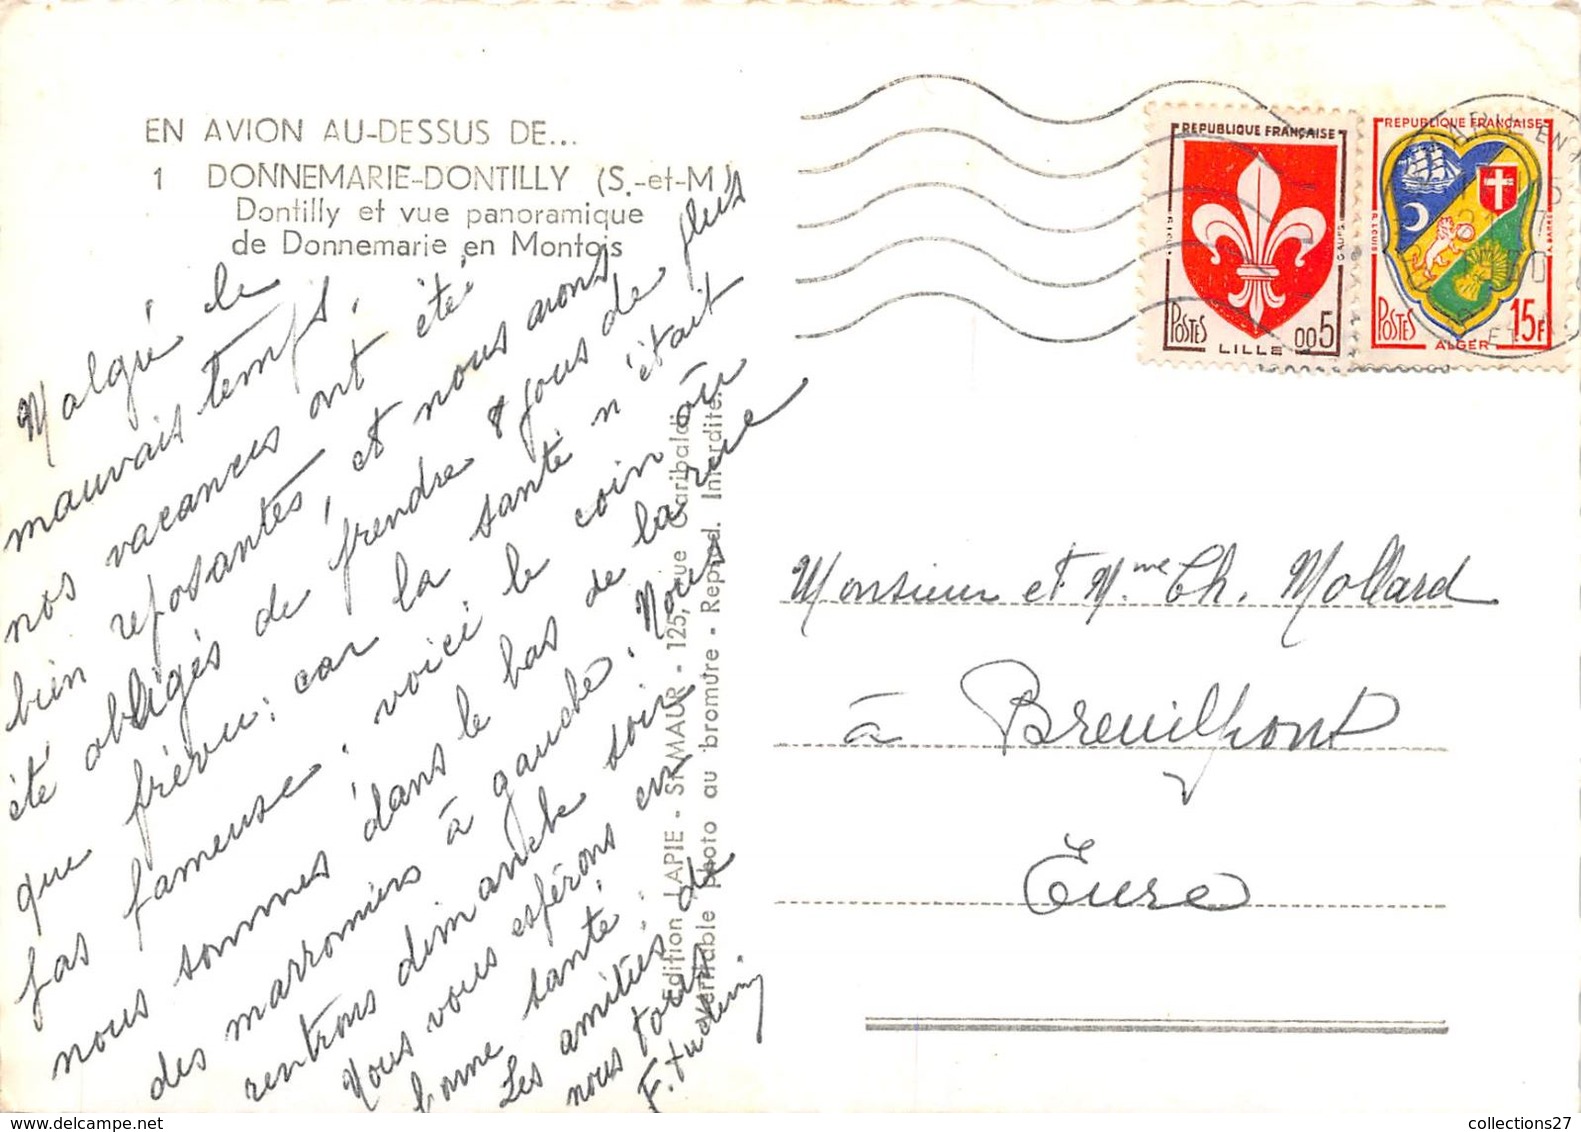 EN AVION AU-DESSUS DE...
1 DONNEMARIE-DONTILLY (S.-et-M.)
Dontilly et vue panoramique
de Donnemarie en Montois
Malgré le
mauvais temps,
nos vacances ont été
bien reposantes, et nous avons
été obligés de prendre 8 jours de plus
que prévu: car la santé n'était
pas fameuse. voici le coin où
nous sommes dans le bas de la rue
des marroniers à gauche. Nous
rentrons dimanche soir
Nous vous espérons en
bonne santé.
Les amitiés de
nous tous
Edition LAPIE - St-MAUR - 125, rue Garibaldi
Véritable photo au bromure - Reprod. Interdite.
REPUBLIQUE FRANÇAISE
POSTES
LILLE
005
REPUBLIQUE FRANÇAISE
POSTES
ALGER
15F
Monsieur et Mme Ch. Mollard
à Breuilpont
Eure
collections27